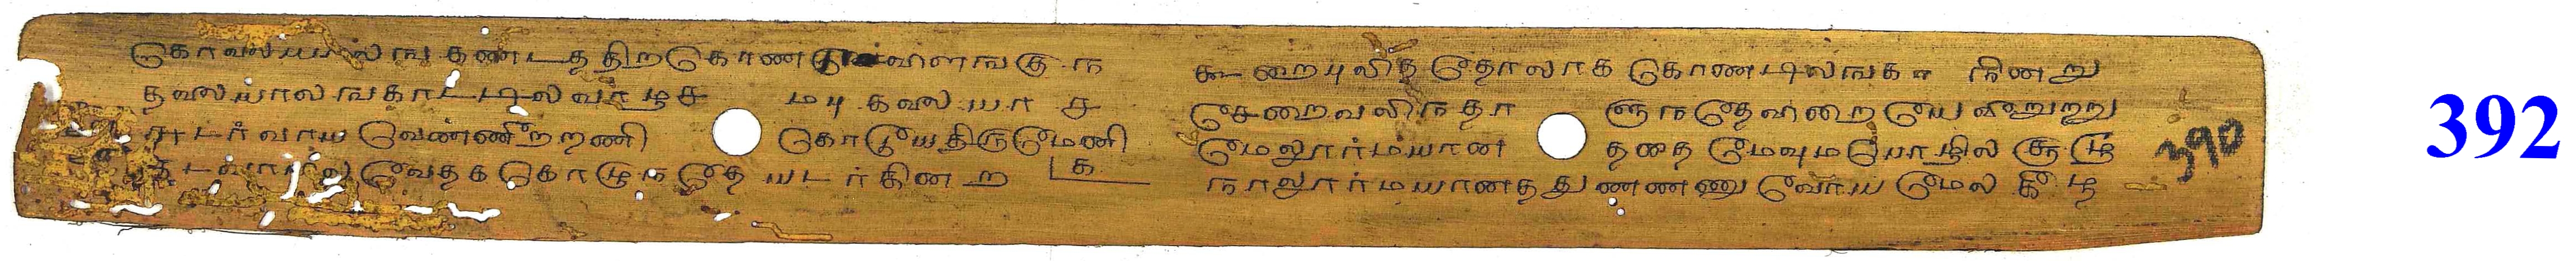 கொவலயாலங கணடத திறகொண விளஙகு ந
தவலயாலஙகாட்டில வாழச மபு கவல யா ச
சுடர்வாய வெண்ணீறறணி கொடுயதிருமேணி
வெதககொழுநதே யடர்கினற க
கூறை புலித தோலாக கொணடிலஙகா நினறு
சேறைவலிநதா ளுநதேவறை யே வீறுறறு
மேலூர்மயான ததை மேவுமபொழில சூழ
நாலூர்மயானதது ணணணு வோய மேல கீழ
390
392